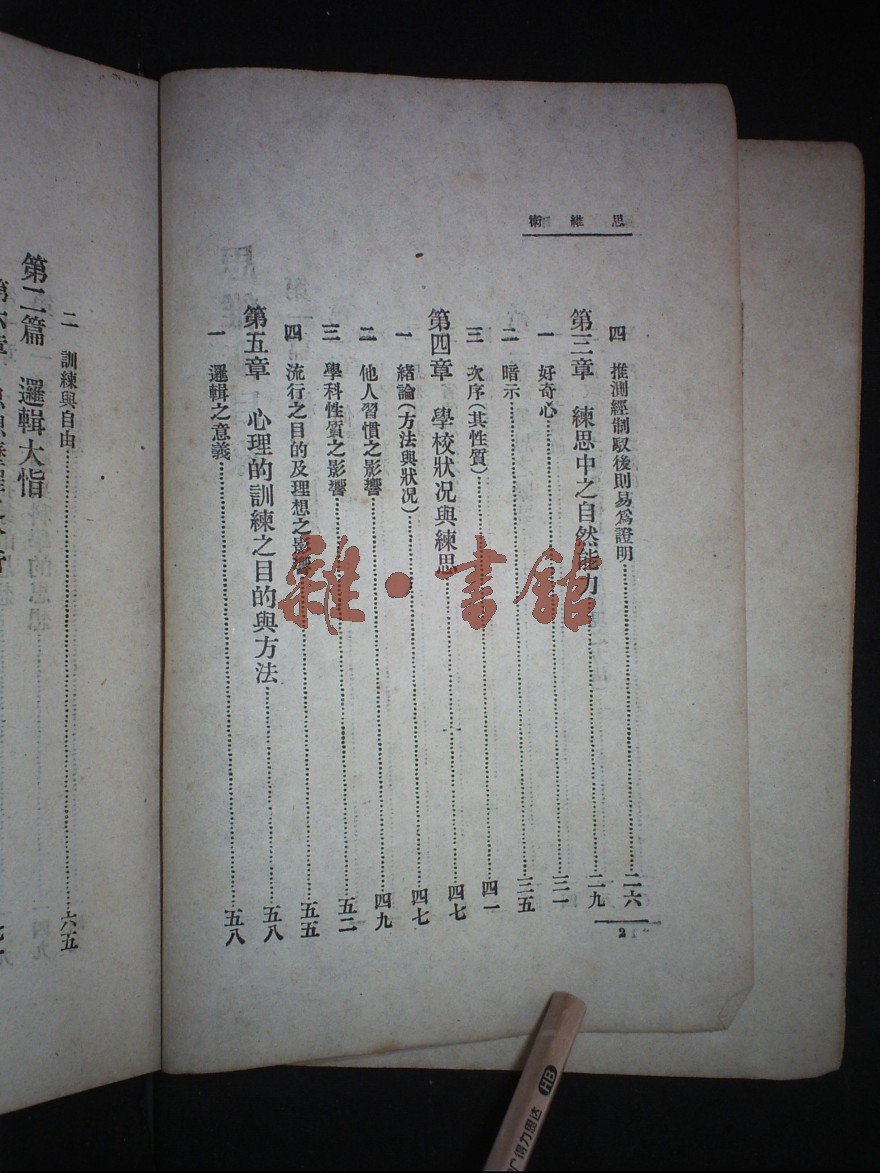 思維術
四 推測經制馭後則易爲證明 二六
第三章 練思中之自然能力 二九
一 好奇心 三一
二 暗示 三五
三 次序(其性質) 四一
第四章 學校狀况與練思 四七
一 緒論(方法與狀况) 四七
二 他人習慣之影響 四九
三 學科性質之影響 五二
四 流行之目的及理想之影響 五五
第五章 心理的訓練之目的與方法 五八
一 邏輯之意義 五八
2
二 訓練與自由 六五
第二篇 邏輯大恉
雜·書館
得力思达 HB